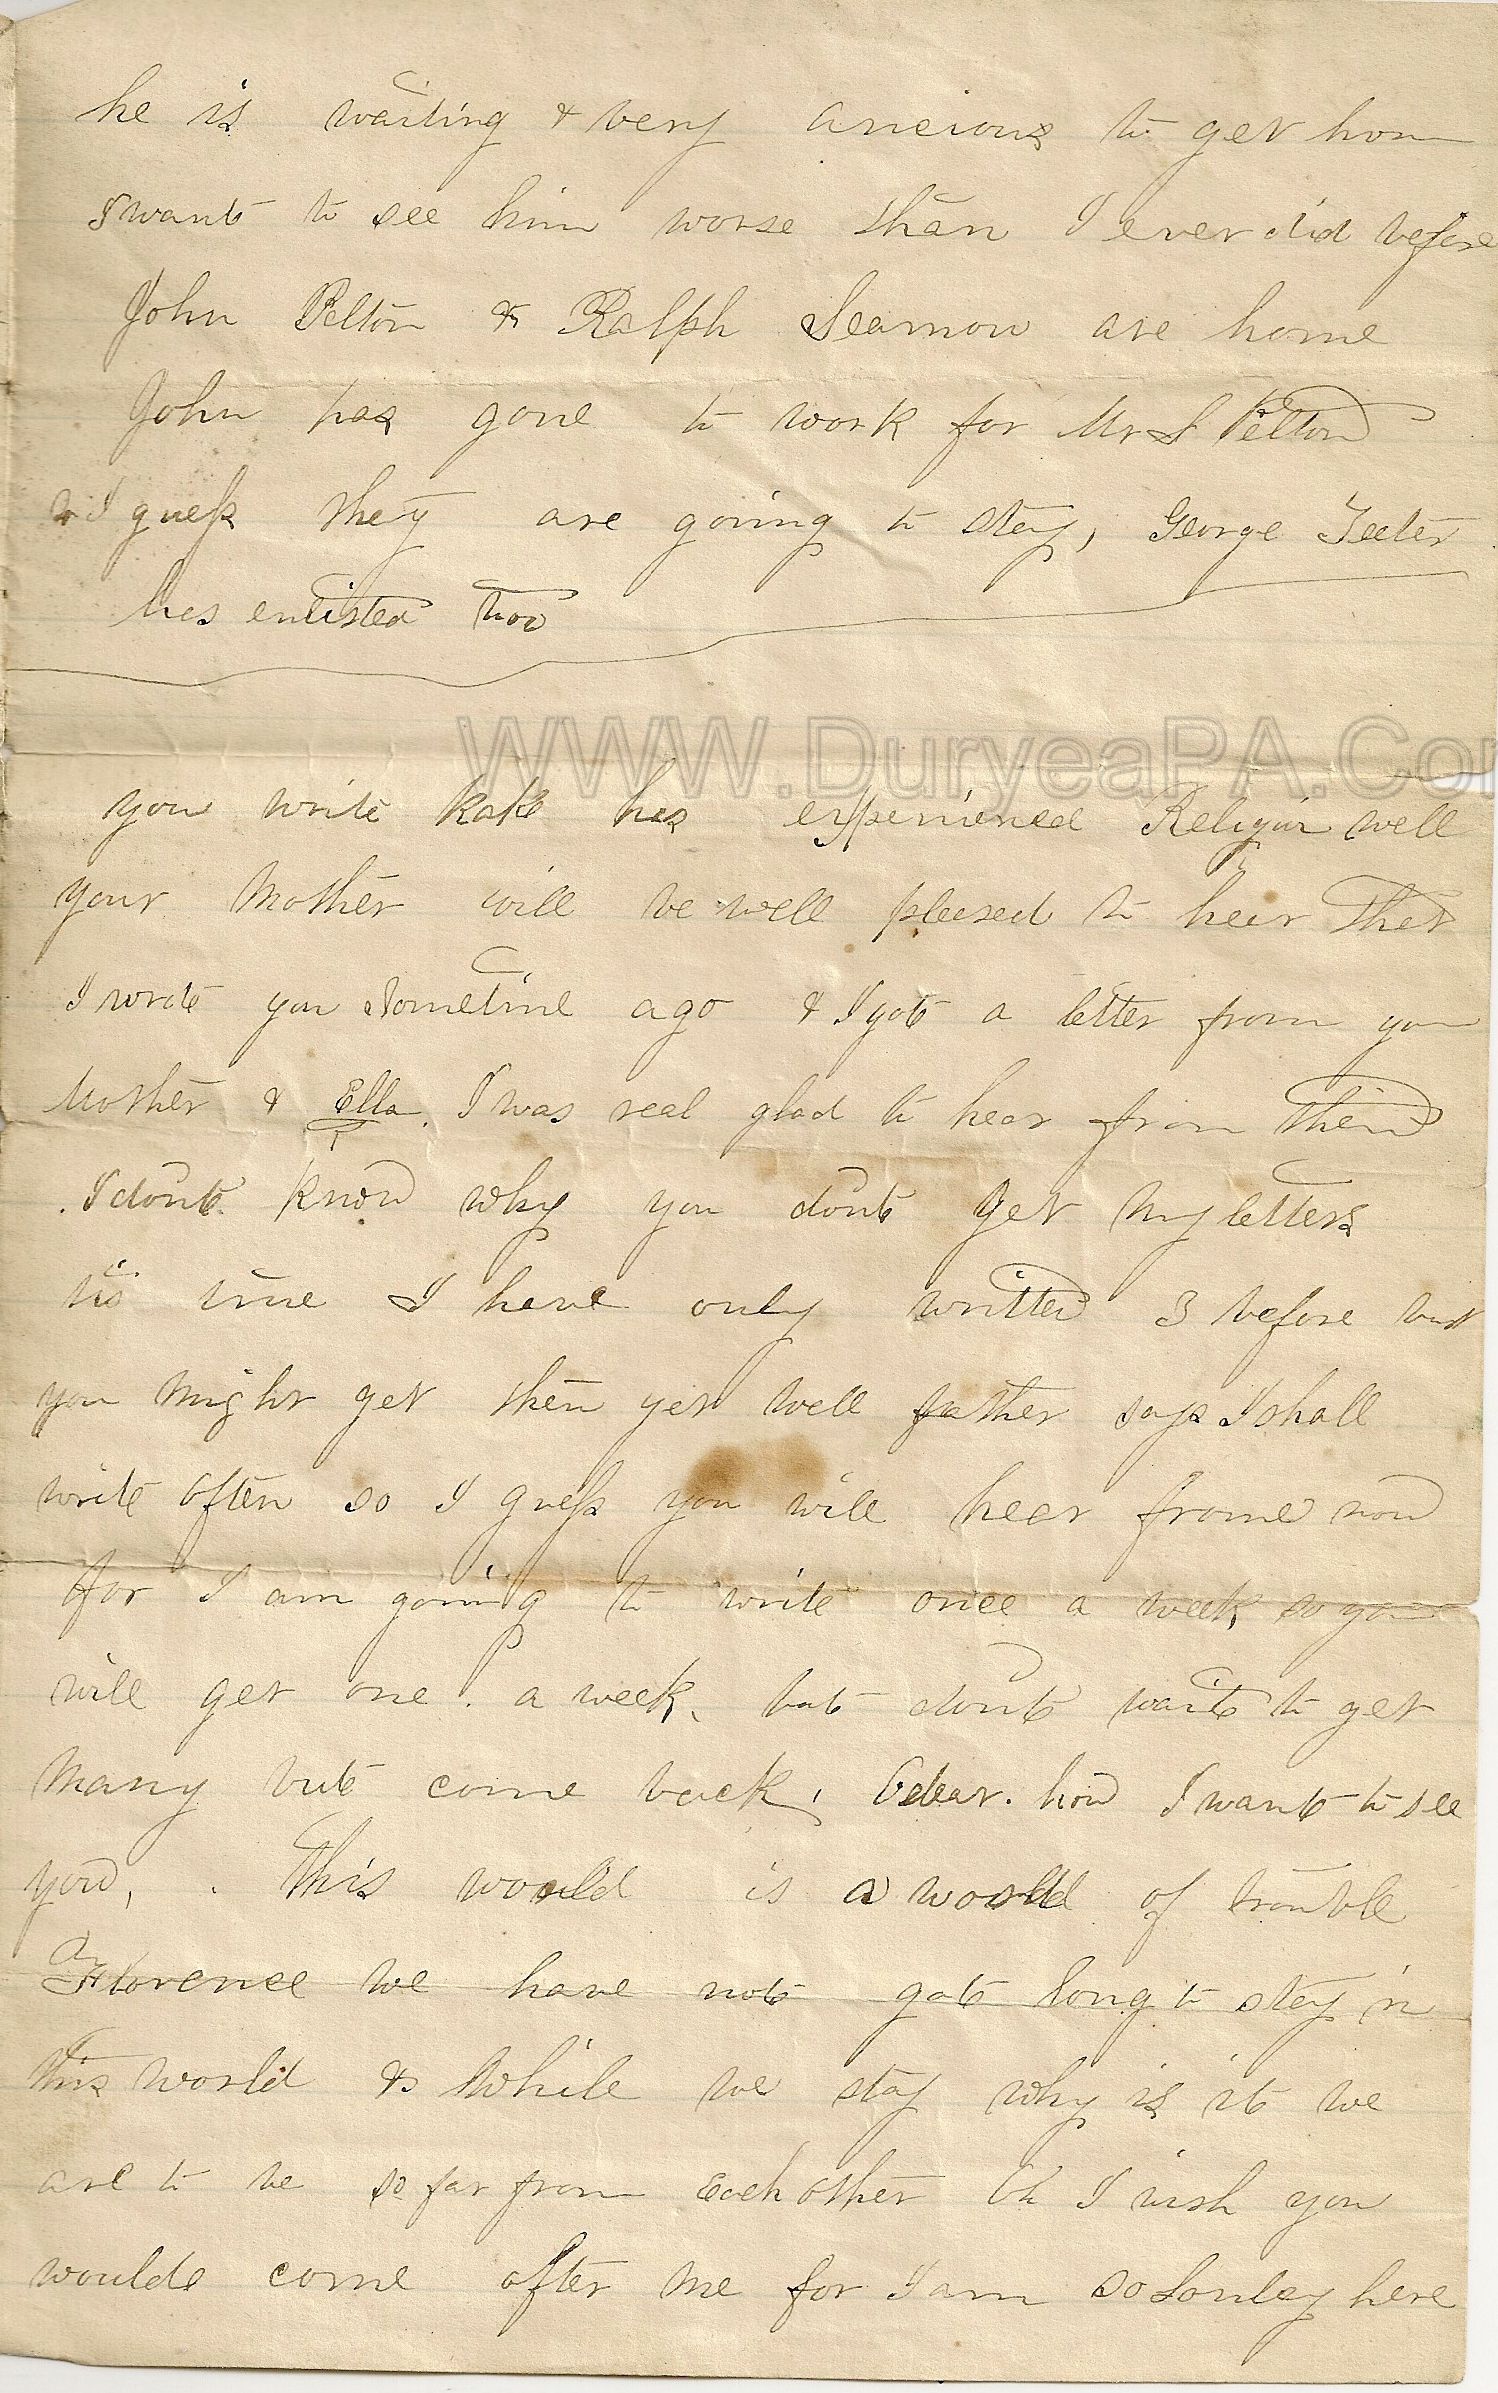 he is waiting & very ancious to get hom
I want to see him worse than I ever did before
John Pelton & Ralph Seamon are home
John has gone to work for Mr S Pelton
I guess they are going to stay, George Teeter
has enlisted too
WWW.DuryeaPA.Co
you write Kate has experienced Religion well
your Mother will be well pleased to hear that
I wrote you Sometime ago & I got a letter from you
Mother & Ella. I was real glad to hear from them
. I dont know why you dont get my letters
tis true I have only written 3 before but
you might get then yet well father says I shall
write often so I guess you will hear frome now
for I am going to write once a week so you
will get one a week. but dont wait to get
many but come back, O dear. how I want to see
you, . This would is a world of trouble
Florence we have not got long to stay in
this world & While we stay why is it we
are to be so far from each other Oh I wish you
woulde come after me for I am so Lonley here